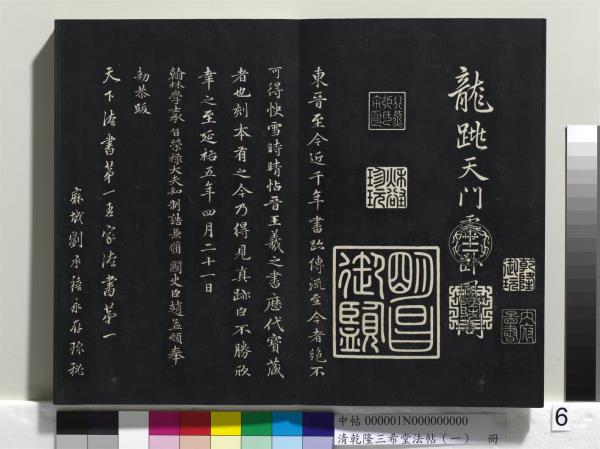 龍跳天門虎卧鳳閣
乾隆御玩
內府圖書
珍玩
明昌御覽
東晉至今近千年書跡傳流至今者絕不
可得快雪時晴帖晉王羲之書歷代寶藏
者也刻本有之今乃得見真跡臣不勝欣
幸之至延祐五年四月二十一日
翰林學士承旨榮祿大夫知制誥兼脩國史臣趙孟頫奉
勑恭跋
天下法書第一吾家法書第一
麻城劉承禧永存珍秘
中帖 000001N000000000
清乾隆三希堂法帖(一) 冊
6